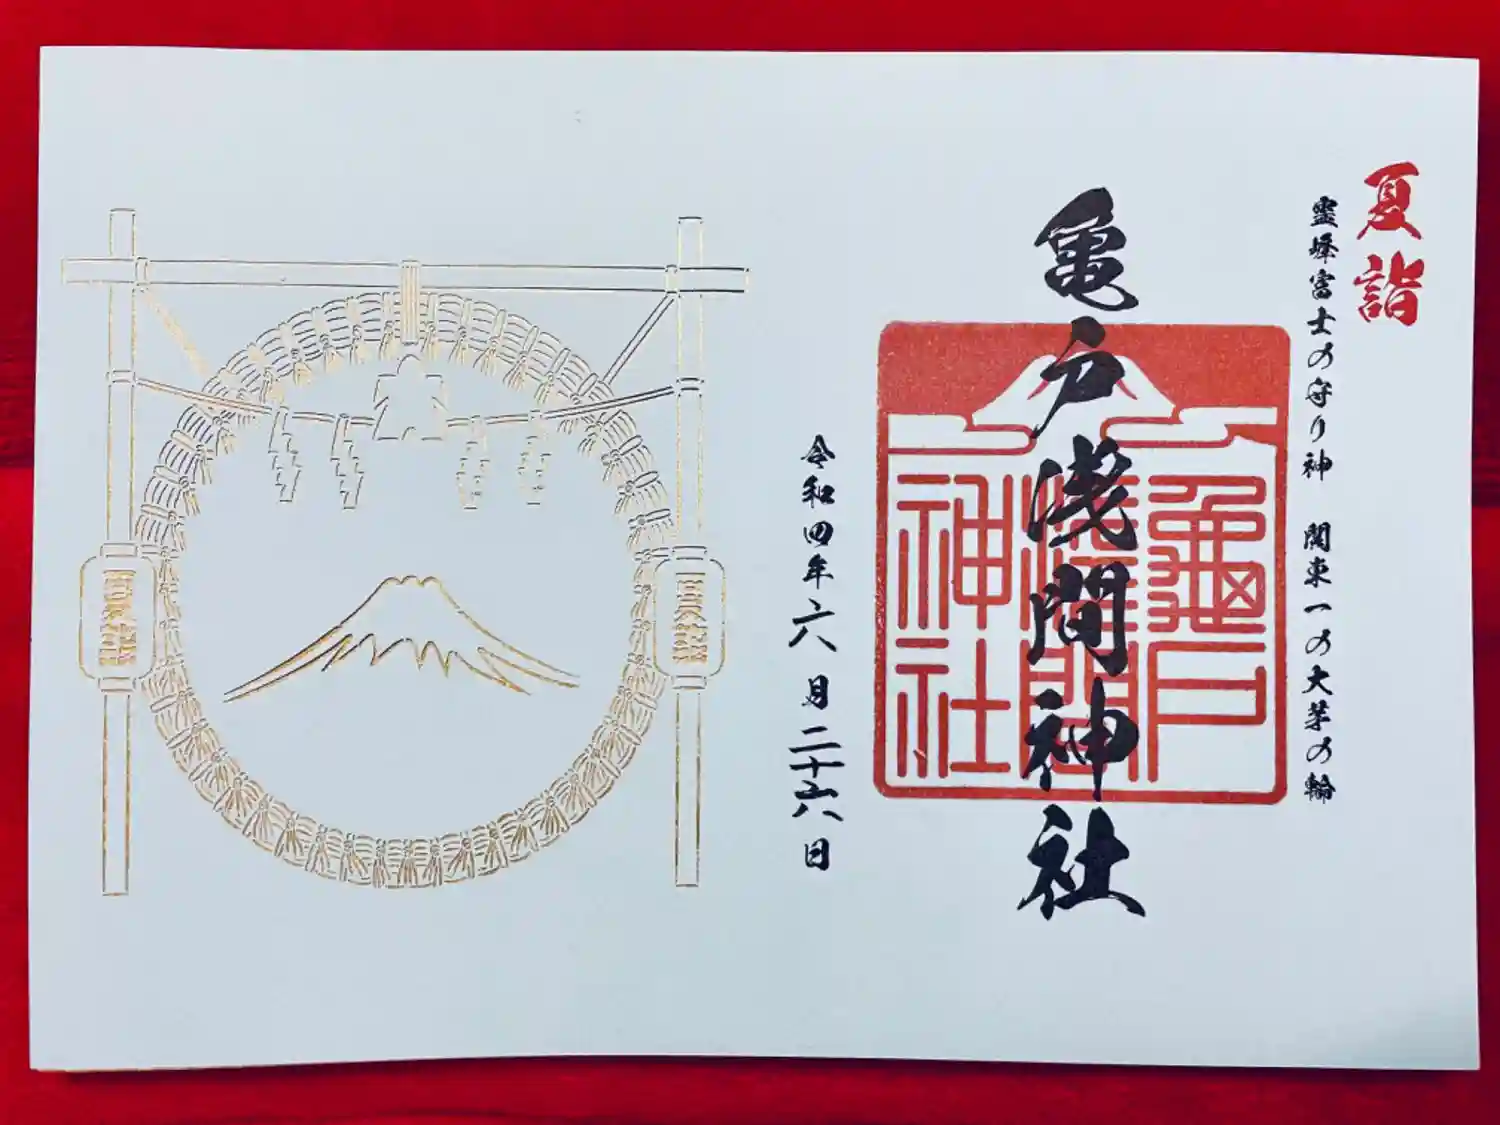 夏詣
霊峰富士の守り神 関東一の大茅の輪
亀戸浅間神社
龜戸
淺間
神社
令和四年六月二十六日